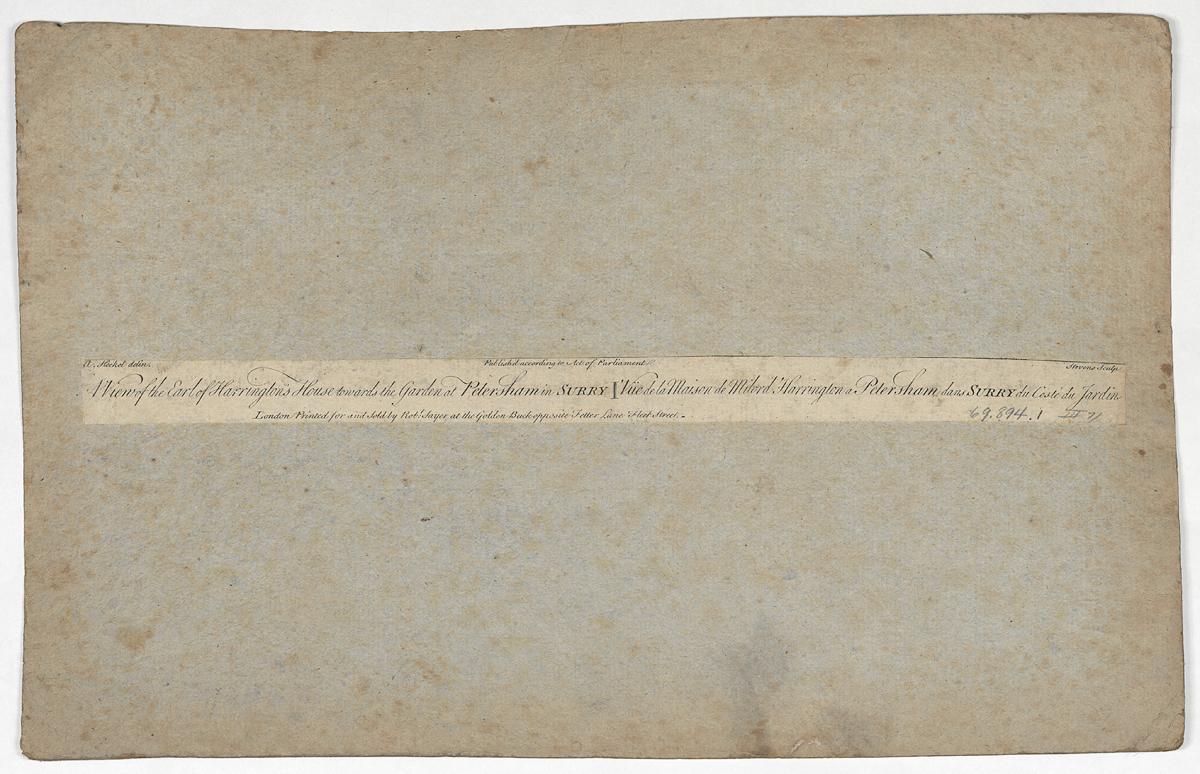 A. Heckel delin. Publish'd according to Act of Parliament Stevens Sculp.
A View of the Earl of Harrington's House towards the Garden at Petersham in SURRY Vüe de la Maison de Milord Harrington a Petersham dans SURRY du Costé du Jardin
London Printed for and Sold by Robt. Sayer at the Golden Buck opposite Fetter Lane Fleet Street.
69.894.1